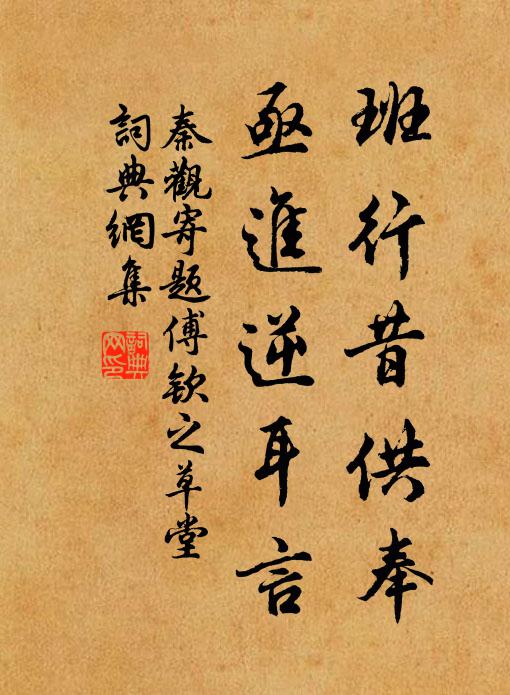 班行昔供奉
亟進逆耳言
秦觀寄題傅欽之草堂
詞典網集
詞典
网印